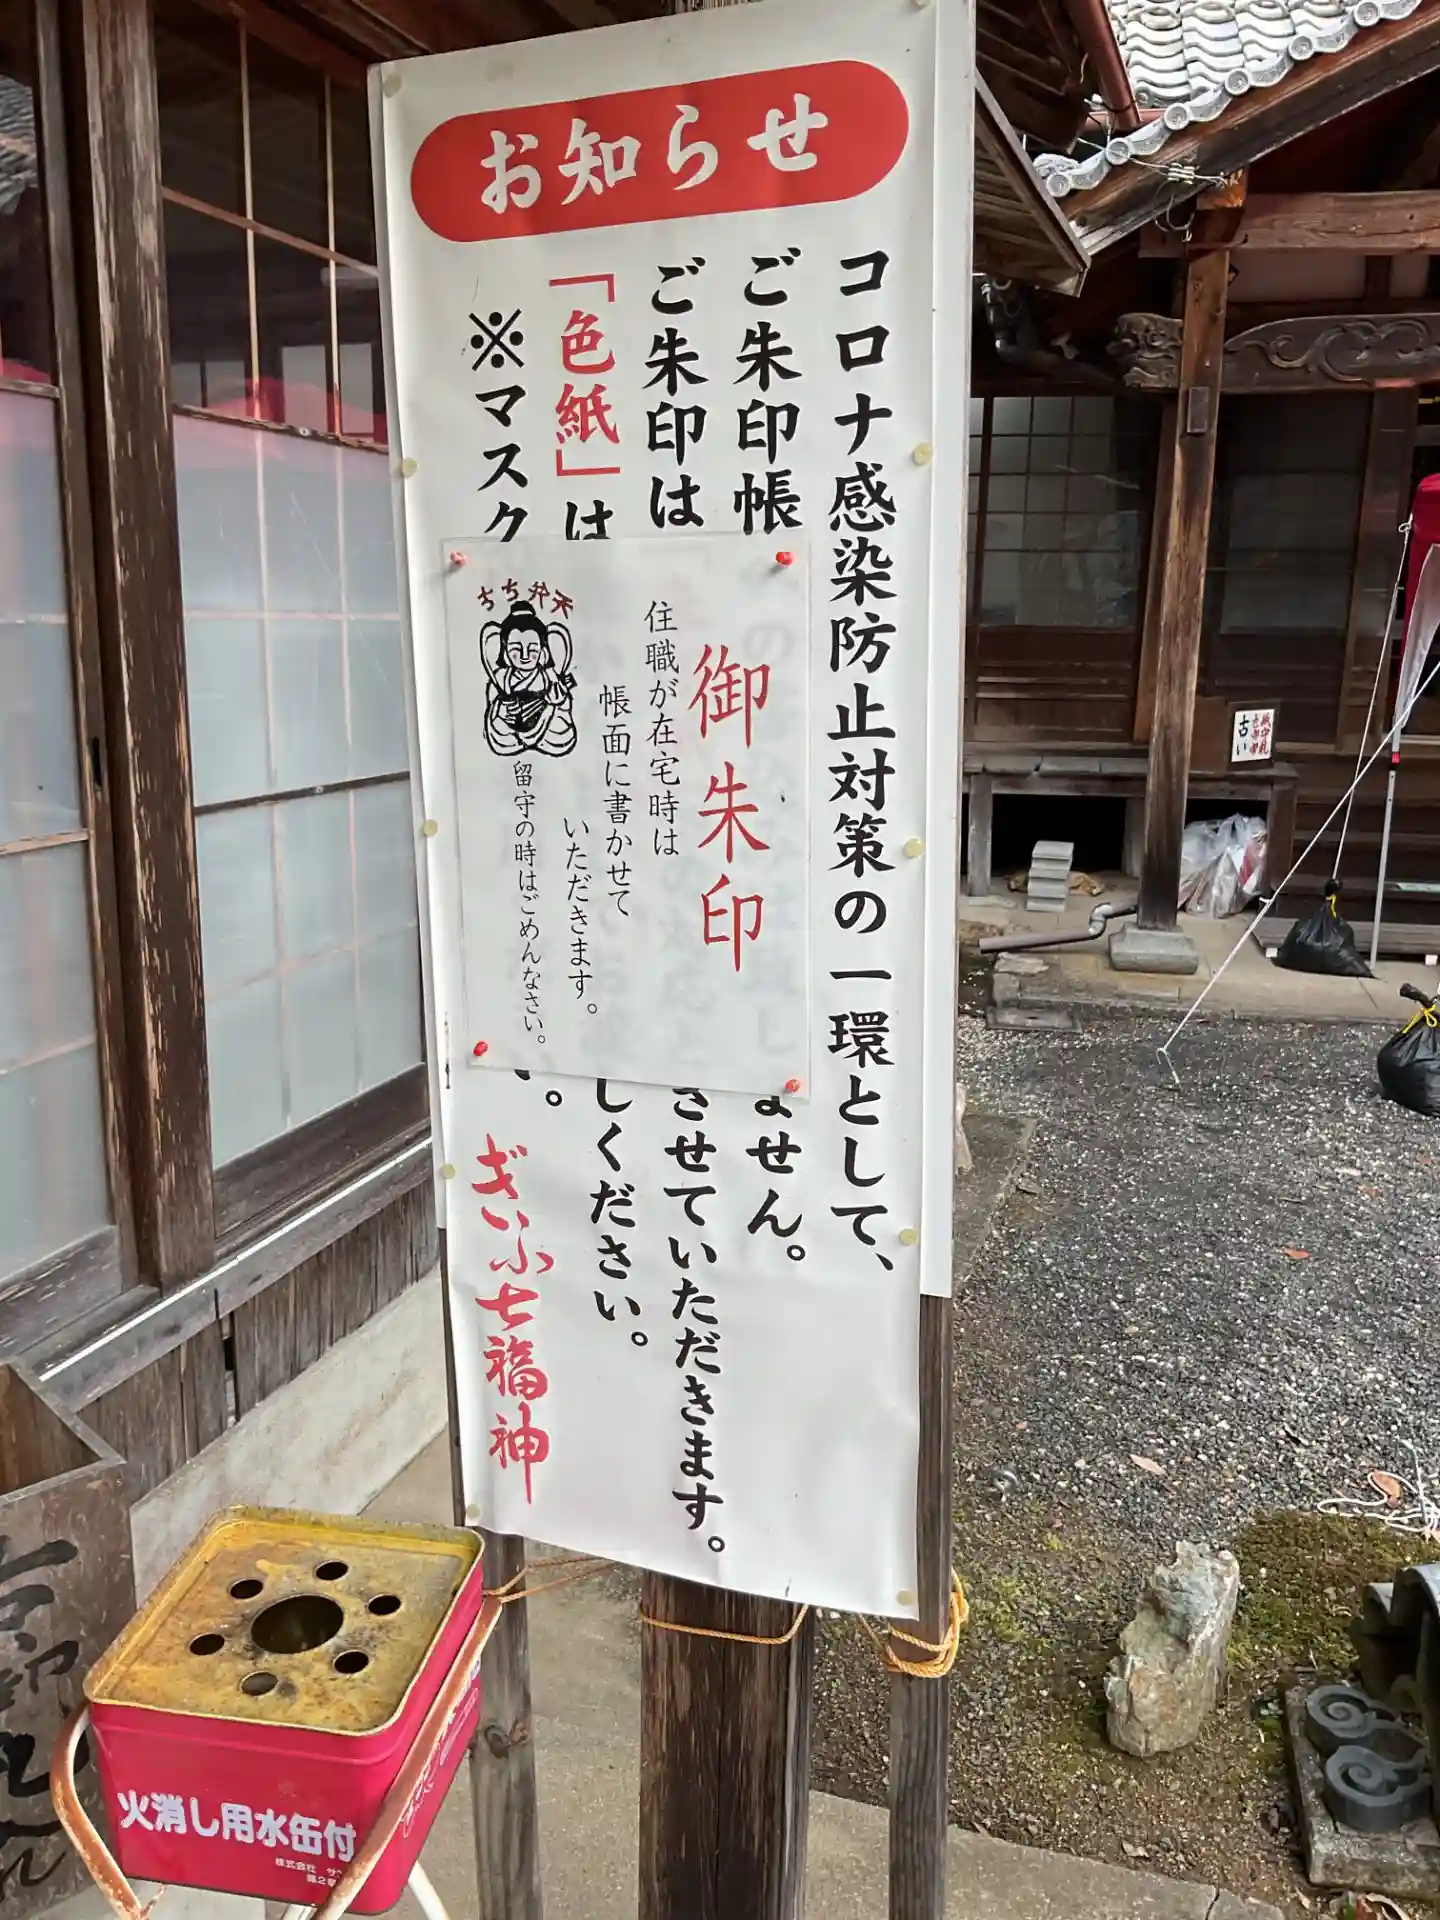 お知らせ
コロナ感染防止対策の一環として、
ご朱印帳
せん。
ご朱印は
させていただきます。
「色紙」は
しください。
※マスク
ぎふ七福神
御朱印
住職が在宅時は
帳面に書かせて
いただきます。
留守の時はごめんなさい。
ちち弁天
古い
火消し用水缶付
株式会社